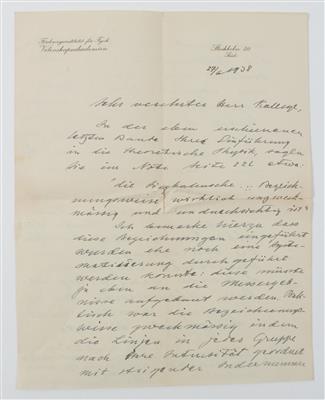 Forskningsinstitutet för Fysik
Vetenskapsakademien
Stockholm 50
29/6 1938
Sehr verehrter Herr Kollege,
In der eben erschienenen
letzten Bande Ihrer Einführung
in die theoretische Physik, sagen
Sie im Note Seite 222 etwa:
"die Siegbahnsche ... Bezeich-
nungsweise wirklich unzweck-
mässig und undurchsichtig ist"
Ich bemerke hierzu dass
diese Bezeichnungen eingeführt
wurden ehe noch eine Syste-
matisierung durchgeführt
werden konnte: diese müsste
ja eben an die Messergeb-
nisse aufgebaut werden. Prak-
tisch war die Bezeichnungs-
weise zweckmässig indem
die Linien in jede Gruppe
nach ihre Intensität geordnet
mit steigender Indexnummer